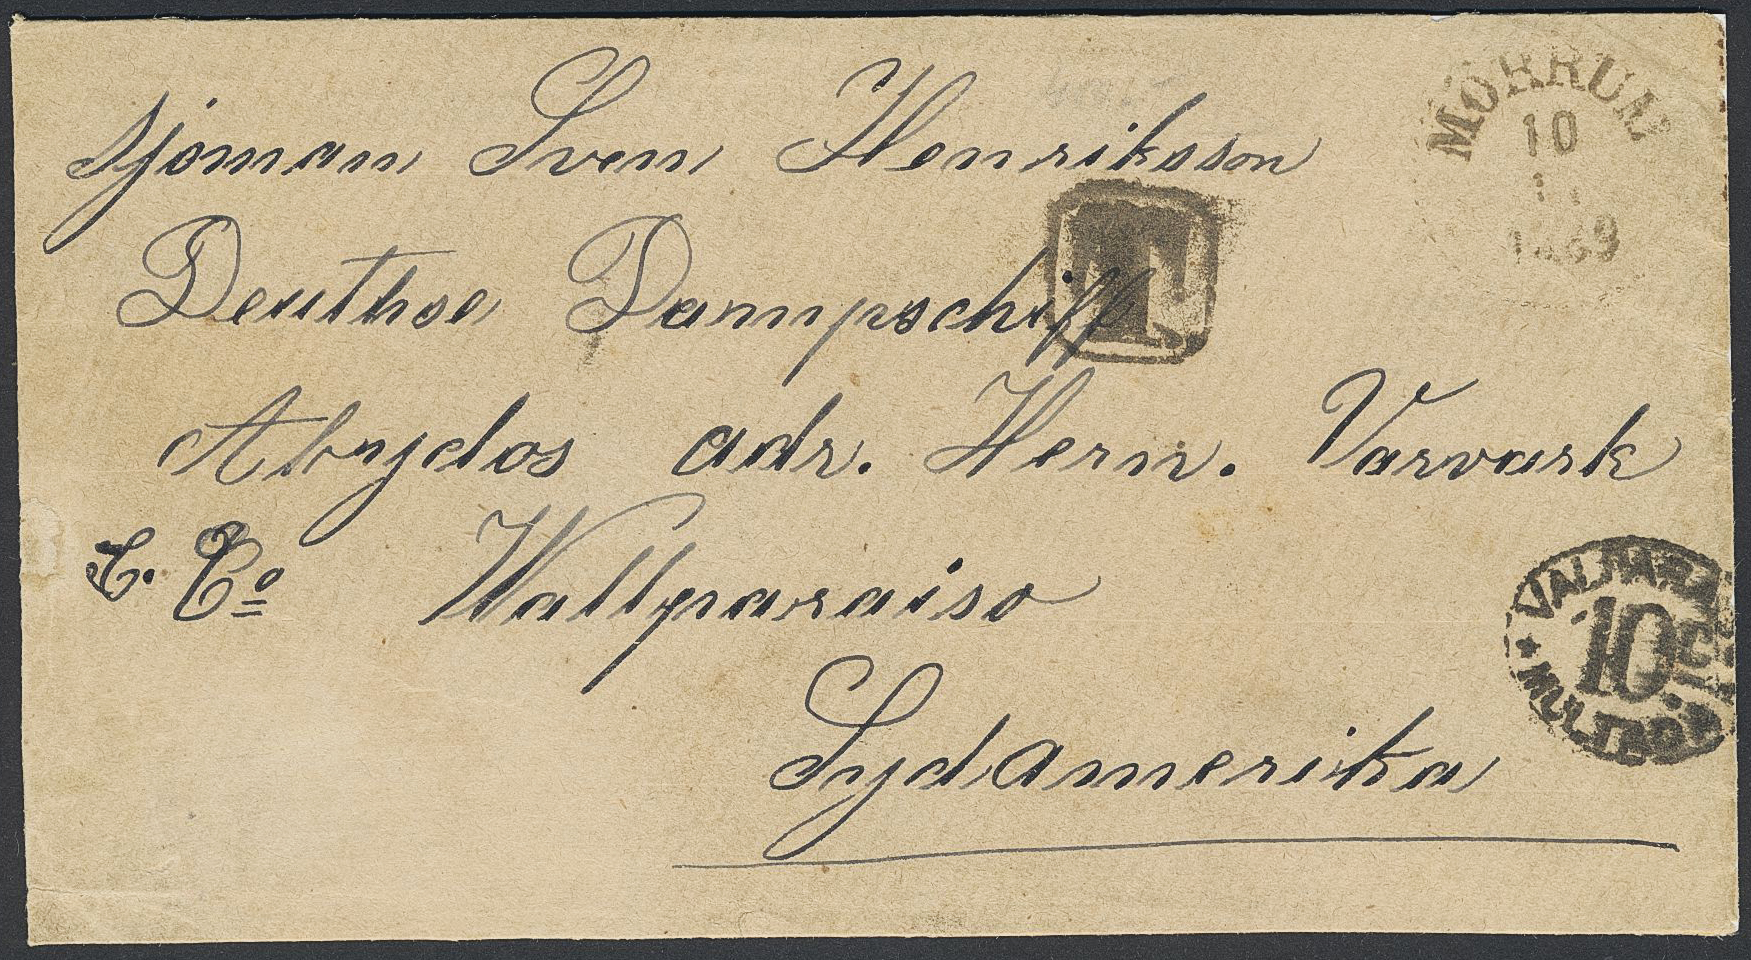 Sjöman Sven Henriksson
Deuthse Dampschiff
Abydos adr. Herrn. Varvark
C. Co Wallparaiso
Sydamerika
MÖRRUM
10
11
1889
T.
VALPARAISO
10 C.
MULTADA